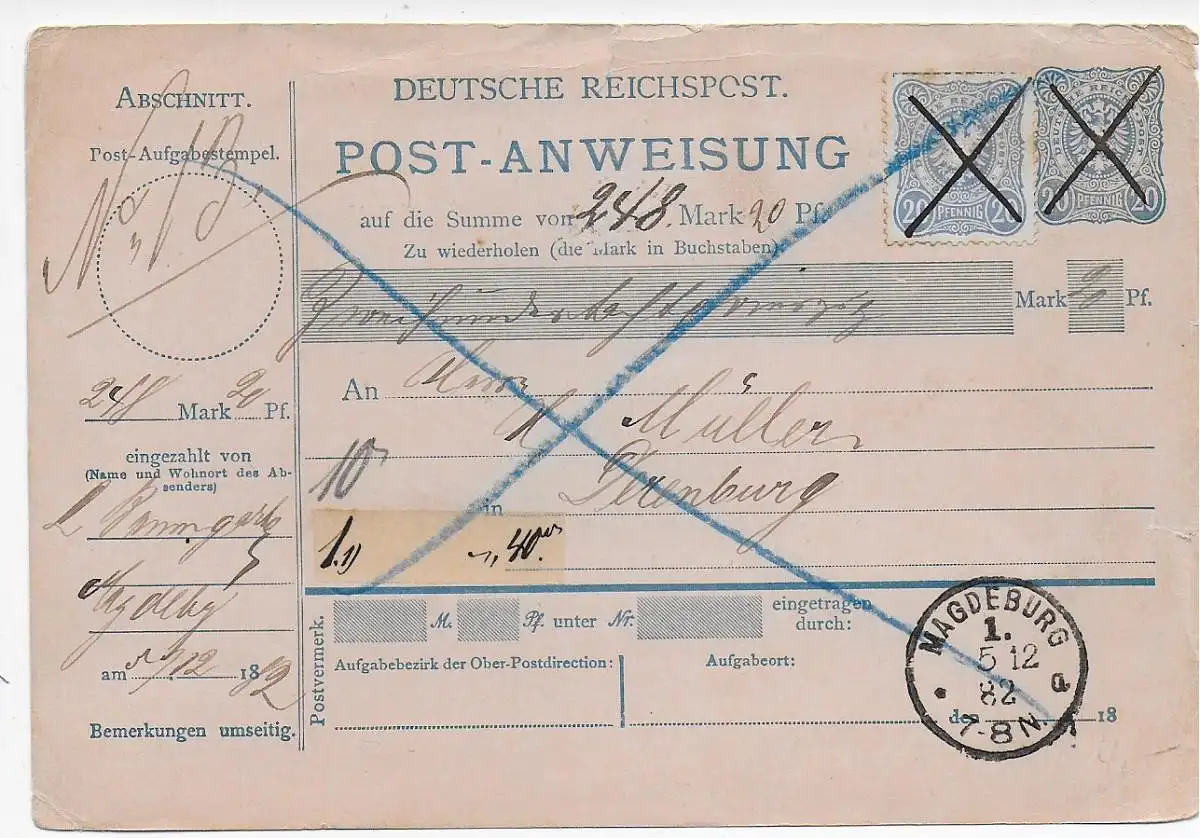 ABSCHNITT.
Post-Aufgabestempel.
248 Mark 20 Pf.
eingezahlt von
(Name und Wohnort des Ab-
senders)
am 5/12 1882
Bemerkungen umseitig.
DEUTSCHE REICHSPOST.
POST-ANWEISUNG
auf die Summe von 248. Mark 20 Pf.
Zu wiederholen (die Mark in Buchstaben):
Zweihundertachtundvierzig Mark 20 Pf.
An Herrn
Müller
10
in Derenburg
40
Postvermerk.
M. Pf. unter Nr. eingetragen
durch:
Aufgabebezirk der Ober-Postdirection: Aufgabeort:
den 18
DEUTSCHE REICHS-POST
20 PFENNIG 20
DEUTSCHE REICHS-POST
20 PFENNIG 20
MAGDEBURG
1.
5 12
82
7-8 N.
d